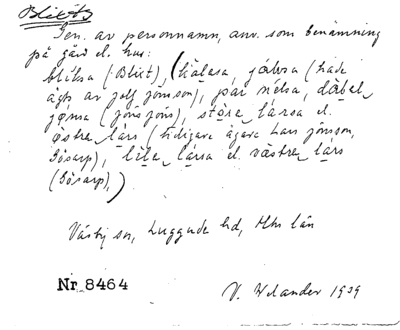 Blixts
Gen. av personnamn, anv. som benämning
på gård el. hus:
bliksa (Blixt), (kalasa, jäbsa (hade
ägts av Jeff Jönsson), pär nelsa, dåbel
jønsa (jöns jöns), störe lårsa el.
östre lårs (tidigare ägare Lars Jönsson,
Gösarp), lile lårsa el. västre lårs
(Gösarp),)
Väsby sn, Luggude hd, Mhs län
Nr 8464
V. Welander 1939